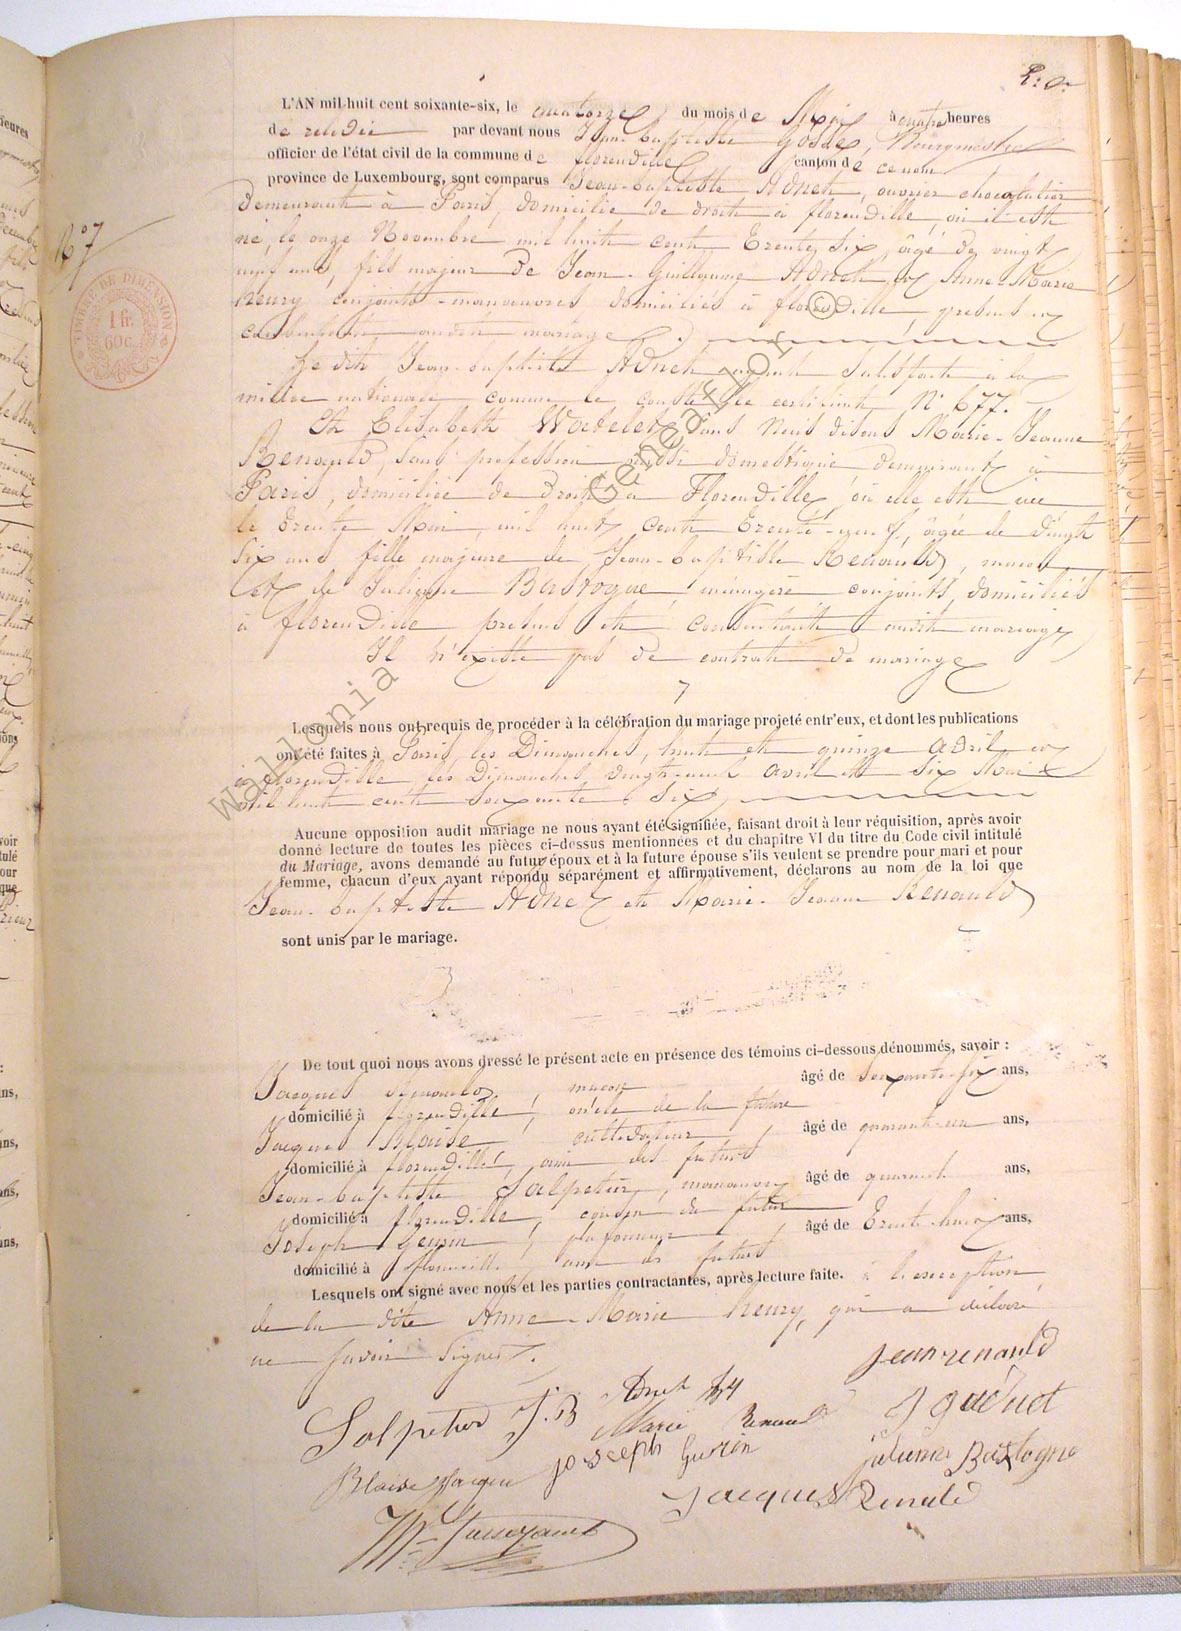 L'AN mil huit cent soixante-six, le quatorze du mois de Mai à quatre heures
de relevée par devant nous Jean-baptiste Gosse, Bourgmestre
officier de l'état civil de la commune de florenville, canton de ce nom
province de Luxembourg, sont comparus Jean-baptiste Adnet, ouvrier chocolatier
Demeurant à Paris, domicilié de droit à florenville, où il est
né, le onze Novembre mil huit cent trente six, âgé de vingt
neuf ans, fils majeur de Jean-Guillaume Adnet et Anne-Marie
henry conjoints manœuvres domiciliés à florenville, présents et
consentants audit mariage.
N° 7
TIMBRE DE DIMENSION
1 fr.
60 c.
Le dit Jean-baptiste Adnet ayant satisfait à la
milice nationale comme le constate le certificat N° 677.
Et Elisabeth Watelet, Nous disons Marie-Jeanne
Renauld, sans profession domestique demeurant à
Paris, domiciliée de droit à Florenville, où elle est née
le trente Mai, mil huit cent trente-neuf, âgée de vingt
six ans fille majeure de Jean-baptiste Renauld, maçon
et de Julienne Bastogne, ménagère conjoints, domiciliés
à florenville présents et consentants audit mariage,
Il n'existe pas de contrat de mariage
Lesquels nous ont requis de procéder à la célébration du mariage projeté entr'eux, et dont les publications
ont été faites à Paris, les Dimanches, huit et quinze avril et
à florenville, les Dimanches, vingt-neuf avril et six Mai
mil huit cent soixante six,
Aucune opposition audit mariage ne nous ayant été signifiée, faisant droit à leur réquisition, après avoir
donné lecture de toutes les pièces ci-dessus mentionnées et du chapitre VI du titre du Code civil intitulé
du Mariage, avons demandé au futur époux et à la future épouse s'ils veulent se prendre pour mari et pour
femme, chacun d'eux ayant répondu séparément et affirmativement, déclarons au nom de la loi que
Jean-baptiste Adnet et Marie-Jeanne Renauld
sont unis par le mariage.
De tout quoi nous avons dressé le présent acte en présence des témoins ci-dessous dénommés, savoir :
Jacques Renauld, maçon âgé de soixante-six ans,
domicilié à florenville, oncle de la future
Jacques Blaise, cultivateur, âgé de quarante-un ans,
domicilié à florenville, ami des futurs
Jean-baptiste Salpeteur, manœuvre âgé de quarante ans,
domicilié à florenville, cousin du futur
Joseph âgé de trente huit ans,
domicilié à florenville ami des futurs
Lesquels ont signé avec nous et les parties contractantes, après lecture faite. à l'exception
de la dite Anne-Marie henry, qui a déclaré
ne savoir signer.
jean renauld
Salpeteur J. B
Adnet
Marie Renauld
Joseph
julienne Bastogne
Blaise Jacques
Jacques Renauld
Wallonia © GeneaFlor